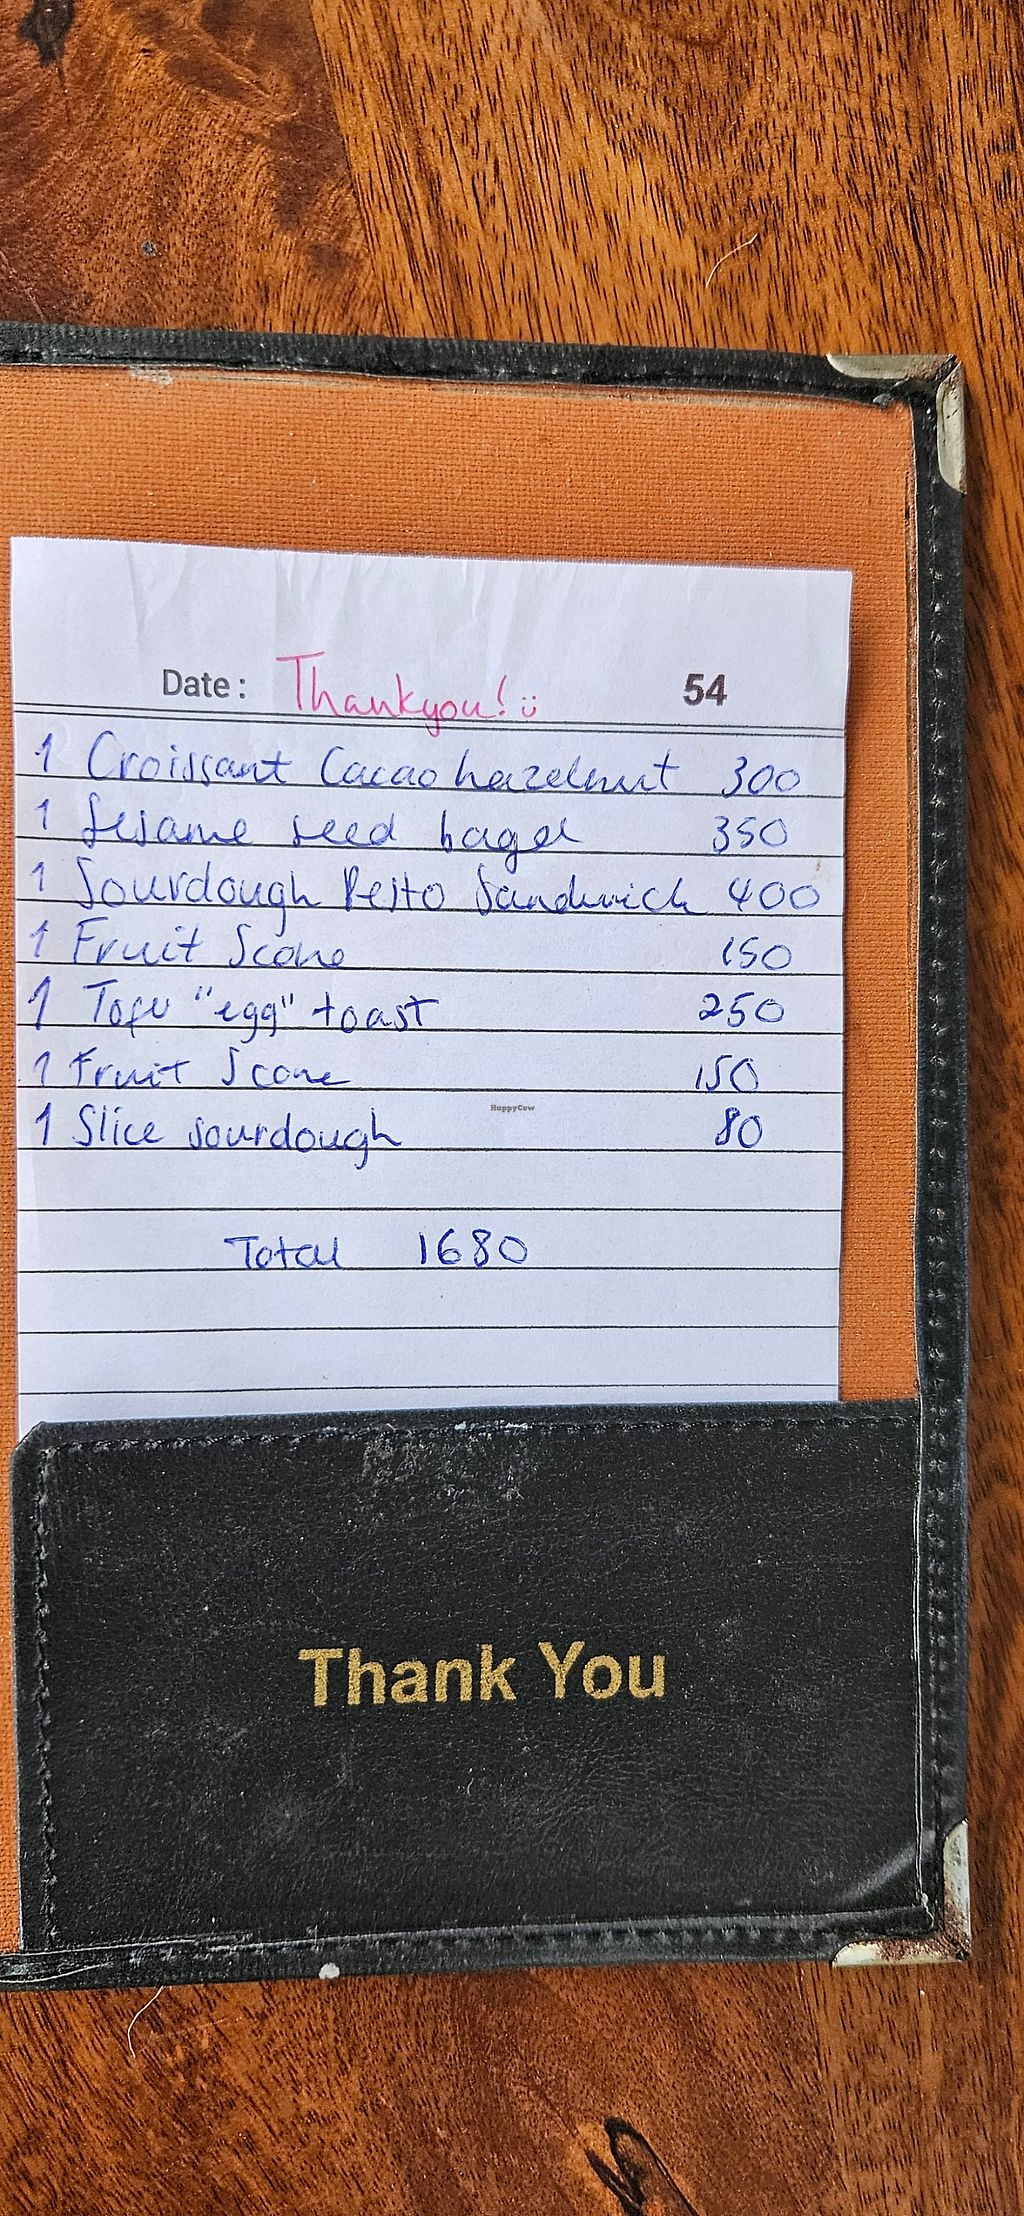 Date : Thankyou! 54
1 Croissant Cacao hazelnut 300
1 Sesame seed bagel 350
1 Sourdough Pesto Sandwich 400
1 Fruit Scone 150
1 Tofu "egg" toast 250
1 Fruit Scone 150
1 Slice sourdough 80
HappyCow
Total 1680
Thank You